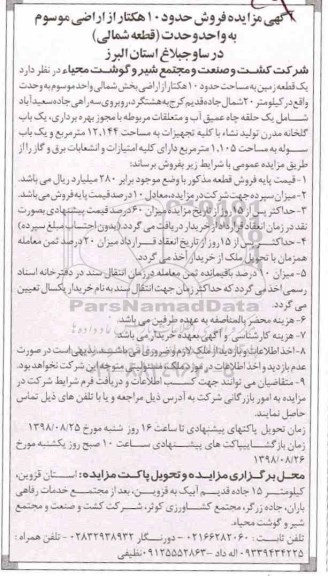 آگهی مزایده فروش حدود ۱۰ هکتار از اراضی موسوم
به واحد وحدت (قطعه شمالی)
در ساوجبلاغ استان البرز
شرکت کشت و صنعت و مجتمع شیر و گوشت محیاء در نظر دارد
یک قطعه زمین به مساحت حدود ۱۰ هکتار از اراضی بخش شمالی واحد موسوم به وحدت
واقع در کیلومتر ۲۰ شمال جاده قدیم کرج به هشتگرد، روبروی سه راهی جاده سعیدآباد
شامل یک حلقه چاه عمیق آب و متعلقات مربوطه با مجوز بهره برداری، یک باب
گلخانه مدرن تولید نشاء با کلیه تجهیزات به مساحت ۱۲,۱۴۴ مترمربع و یک باب
سوله به مساحت ۱,۱۰۵ مترمربع دارای کلیه امتیازات و انشعابات برق و گاز را از
طریق مزایده عمومی با شرایط زیر بفروش برساند:
۱- قیمت پایه فروش قطعه مذکور با وضع موجود برابر ۲۸۰ میلیارد ریال می باشد.
۲- میزان سپرده جهت شرکت در مزایده، معادل ۱۰ درصد قیمت پایه فروش می باشد.
۳- حداکثر پس از ۱۵ روز از تاریخ مزایده میزان ۶۰ درصد قیمت پیشنهادی بصورت
نقد در زمان انعقاد قرارداد از خریدار دریافت می گردد. (بدون احتساب مبلغ سپرده)
۴- حداکثر پس از ۱۵ روز از تاریخ انعقاد قرارداد میزان ۲۰ درصد ثمن معامله
همزمان با تحویل ملک از خریدار اخذ می گردد.
۵- میزان ۱۰ درصد باقیمانده ثمن معامله در زمان انتقال سند در دفترخانه اسناد
رسمی اخذ می گردد که حداکثر زمان جهت انتقال سند به نام خریدار یکسال تعیین
می گردد.
۶- هزینه محضر بالمناصفه به عهده طرفین می باشد.
۷- هزینه کارشناسی و آگهی بعهده خریدار می باشد.
۸- اخذ اطلاعات و بازدید از ملک لازم و ضروری می باشد. بدیهی است در صورت
عدم بازدید و اخذ اطلاعات در مورد ملک مسئولیتی متوجه این شرکت نخواهد بود.
۹- متقاضیان می توانند جهت کسب اطلاعات و دریافت فرم شرایط شرکت در
مزایده به امور بازرگانی شرکت به آدرس ذیل مراجعه و یا با تلفن های ذیل تماس
حاصل نمایند.
زمان تحویل پاکتهای پیشنهادی تا ساعت ۱۶ روز شنبه مورخ ۱۳۹۸/۰۸/۲۵
زمان بازگشایی پاکت های پیشنهادی ساعت ۱۰ صبح روز یکشنبه مورخ
۱۳۹۸/۰۸/۲۶
محل برگزاری مزایده و تحویل پاکت مزایده: استان قزوین،
کیلومتر ۱۵ جاده قدیم آبیک به قزوین، بعد از مجتمع خدمات رفاهی
باران، جاده زرگر، مجتمع کشاورزی کوثر، شرکت کشت و صنعت و مجتمع
شیر و گوشت محیاء.
تلفن ثابت: ۰۲۱۶۶۲۸۲۰۶۰ - دورنگار ۰۲۸۳۲۹۳۸۹۳۲ - تلفن همراه:
۰۹۳۳۹۴۳۴۲۲۵ اله داد - ۰۹۱۲۵۵۵۲۸۶۳ نظیفی
ParsNamadData